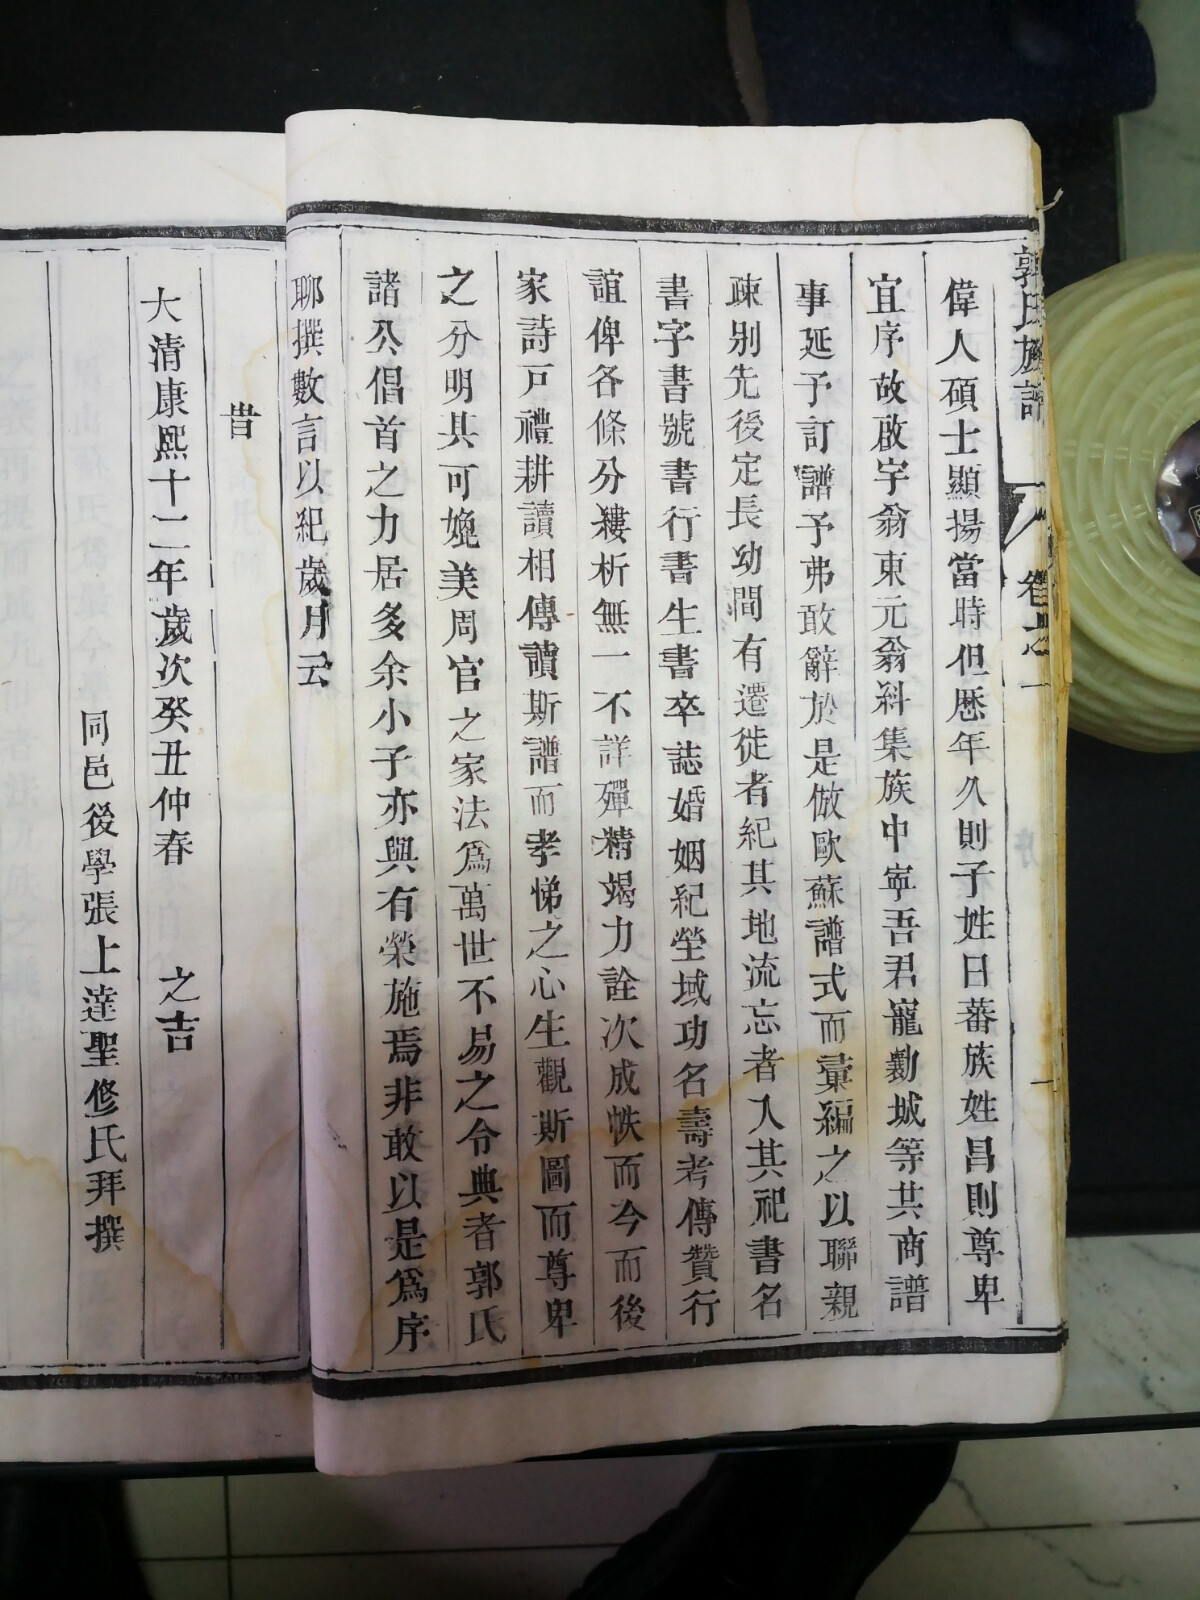 郭氏族譜
卷之一
偉人碩士顯揚當時但歷年久則子姓日蕃族姓昌則尊卑
宜序故啟宇翁東元翁糾集族中寧吾君寵勷城等共商譜
事延予訂譜予弗敢辭於是倣歐蘇譜式而彙編之以聯親
疎别先後定長幼間有遷徙者紀其地流忘者入其祀書名
書字書號書行書生書卒誌婚姻紀塋域功名壽考傳贊行
誼俾各條分縷析無一不詳殫精竭力詮次成帙而今而後
家詩戸禮耕讀相傳讀斯譜而孝悌之心生觀斯圖而尊卑
之分明其可媲美周官之家法爲萬世不易之令典者郭氏
諸公倡首之力居多余小子亦與有榮施焉非敢以是爲序
聊撰數言以紀歲月云
旹
大清康熙十二年歲次癸丑仲春　之吉
同邑後學張上達聖修氏拜撰